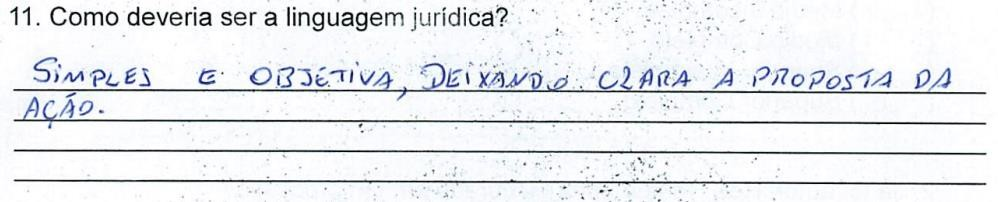 11. Como deveria ser a linguagem jurídica?
SIMPLES E OBJETIVA, DEIXANDO CLARA A PROPOSTA DA
AÇÃO.